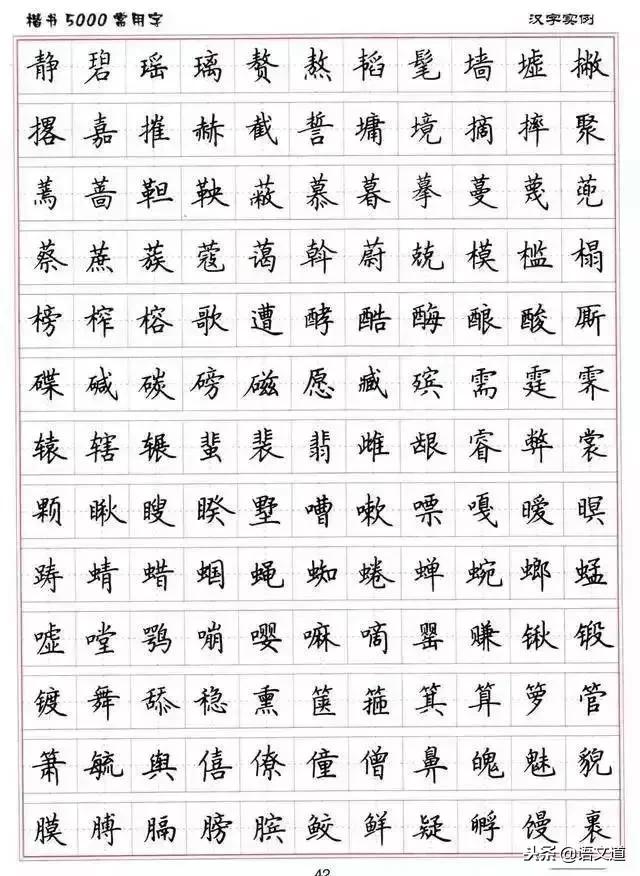 楷书5000常用字 汉字实例
静 碧 瑶 璃 赘 熬 韬 髦 墙 墟 撇
撂 嘉 摧 赫 截 誓 墉 境 摘 摔 聚
蔫 蔷 靼 鞅 蔽 慕 暮 摹 蔓 蔑 蔸
蔡 蔗 蔟 蔻 蔼 斡 蔚 兢 模 槛 榻
榜 榨 榕 歌 遭 酵 酷 酶 酿 酸 厮
碟 碱 碳 磅 磁 愿 臧 殡 需 霆 霁
辕 辖 辗 蜚 裴 翡 雌 龈 睿 弊 裳
颗 瞅 瞍 睽 墅 嘈 嗽 嘌 嘎 暧 暝
踌 蜻 蜡 蝈 蝇 蜘 蜷 蝉 蜿 螂 蜢
嘘 嘡 鹗 嘣 嘤 嘛 嘀 罂 赚 锹 锻
镀 舞 舔 稳 熏 箧 箍 箕 算 箩 管
箫 毓 舆 僖 僚 僮 僧 鼻 魄 魅 貌
膜 膊 膈 膀 膑 鲛 鲜 疑 孵 馒 裹
头条@语文道
42